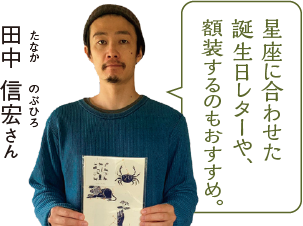 星座に合わせた
誕生日レターや、
額装するのもおすすめ。
たなか のぶひろ
田中 信宏さん